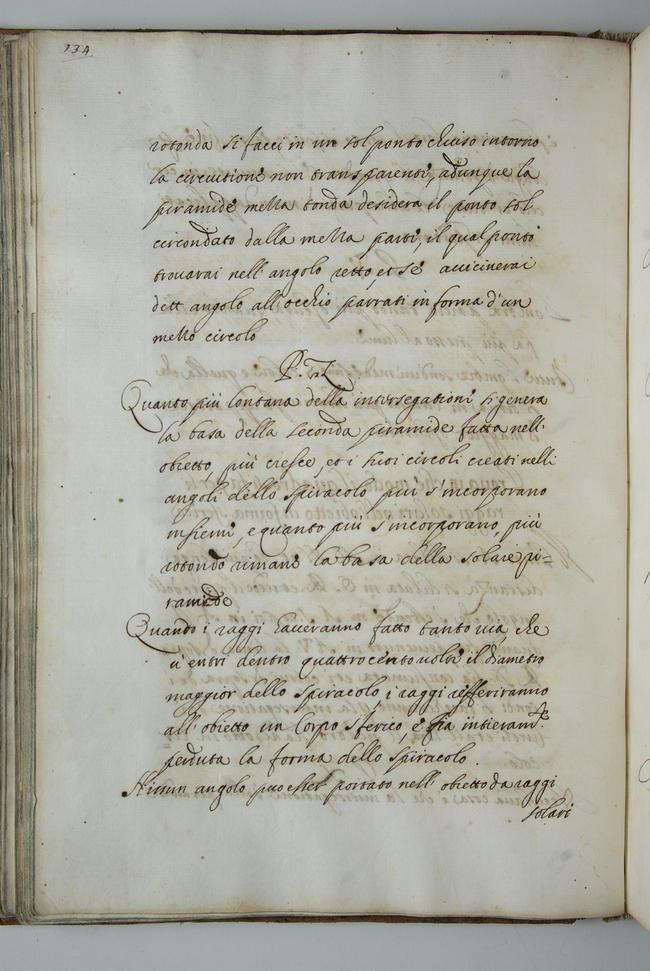 134
rotonda si facci in un sol ponto chiuso intorno
la circuitione non transparente, adunque la
piramide meza tonda desidera il ponto sol
circondato dalla meza parte, il qual ponto
trouarai nell' angolo retto, et se auicinerai
dett' angolo all' occhio parrati in forma d' un
mezo circolo
Quanto più lontana della intersegatione si genera
la basa della seconda piramide fatta nell'
obietto più cresce, et i suoi circoli creati nelli
angoli dello spiracolo più s' incorporano
insieme, e quanto più s' incorporano, più
rotondo rimane la basa della solare pi=
ramide
Quando i raggi haueranno fatto tanto uia, che
u' entri dentro quattrocento uolte il diametro
maggior dello spiracolo, i raggi refferiranno
all' obietto un Corpo sferico e fia intieram.te
perduta la forma dello spiracolo.
Nissun angolo puo esser portato nell' obietto da raggi
solari